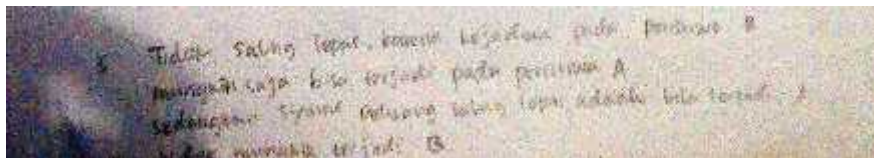 5 Tidak saling lepas, karena kejadian pada peristiwa B
mungkin saja bisa terjadi pada peristiwa A
sedangkan syarat peluang saling lepas adalah bila terjadi A
tidak mungkin terjadi B